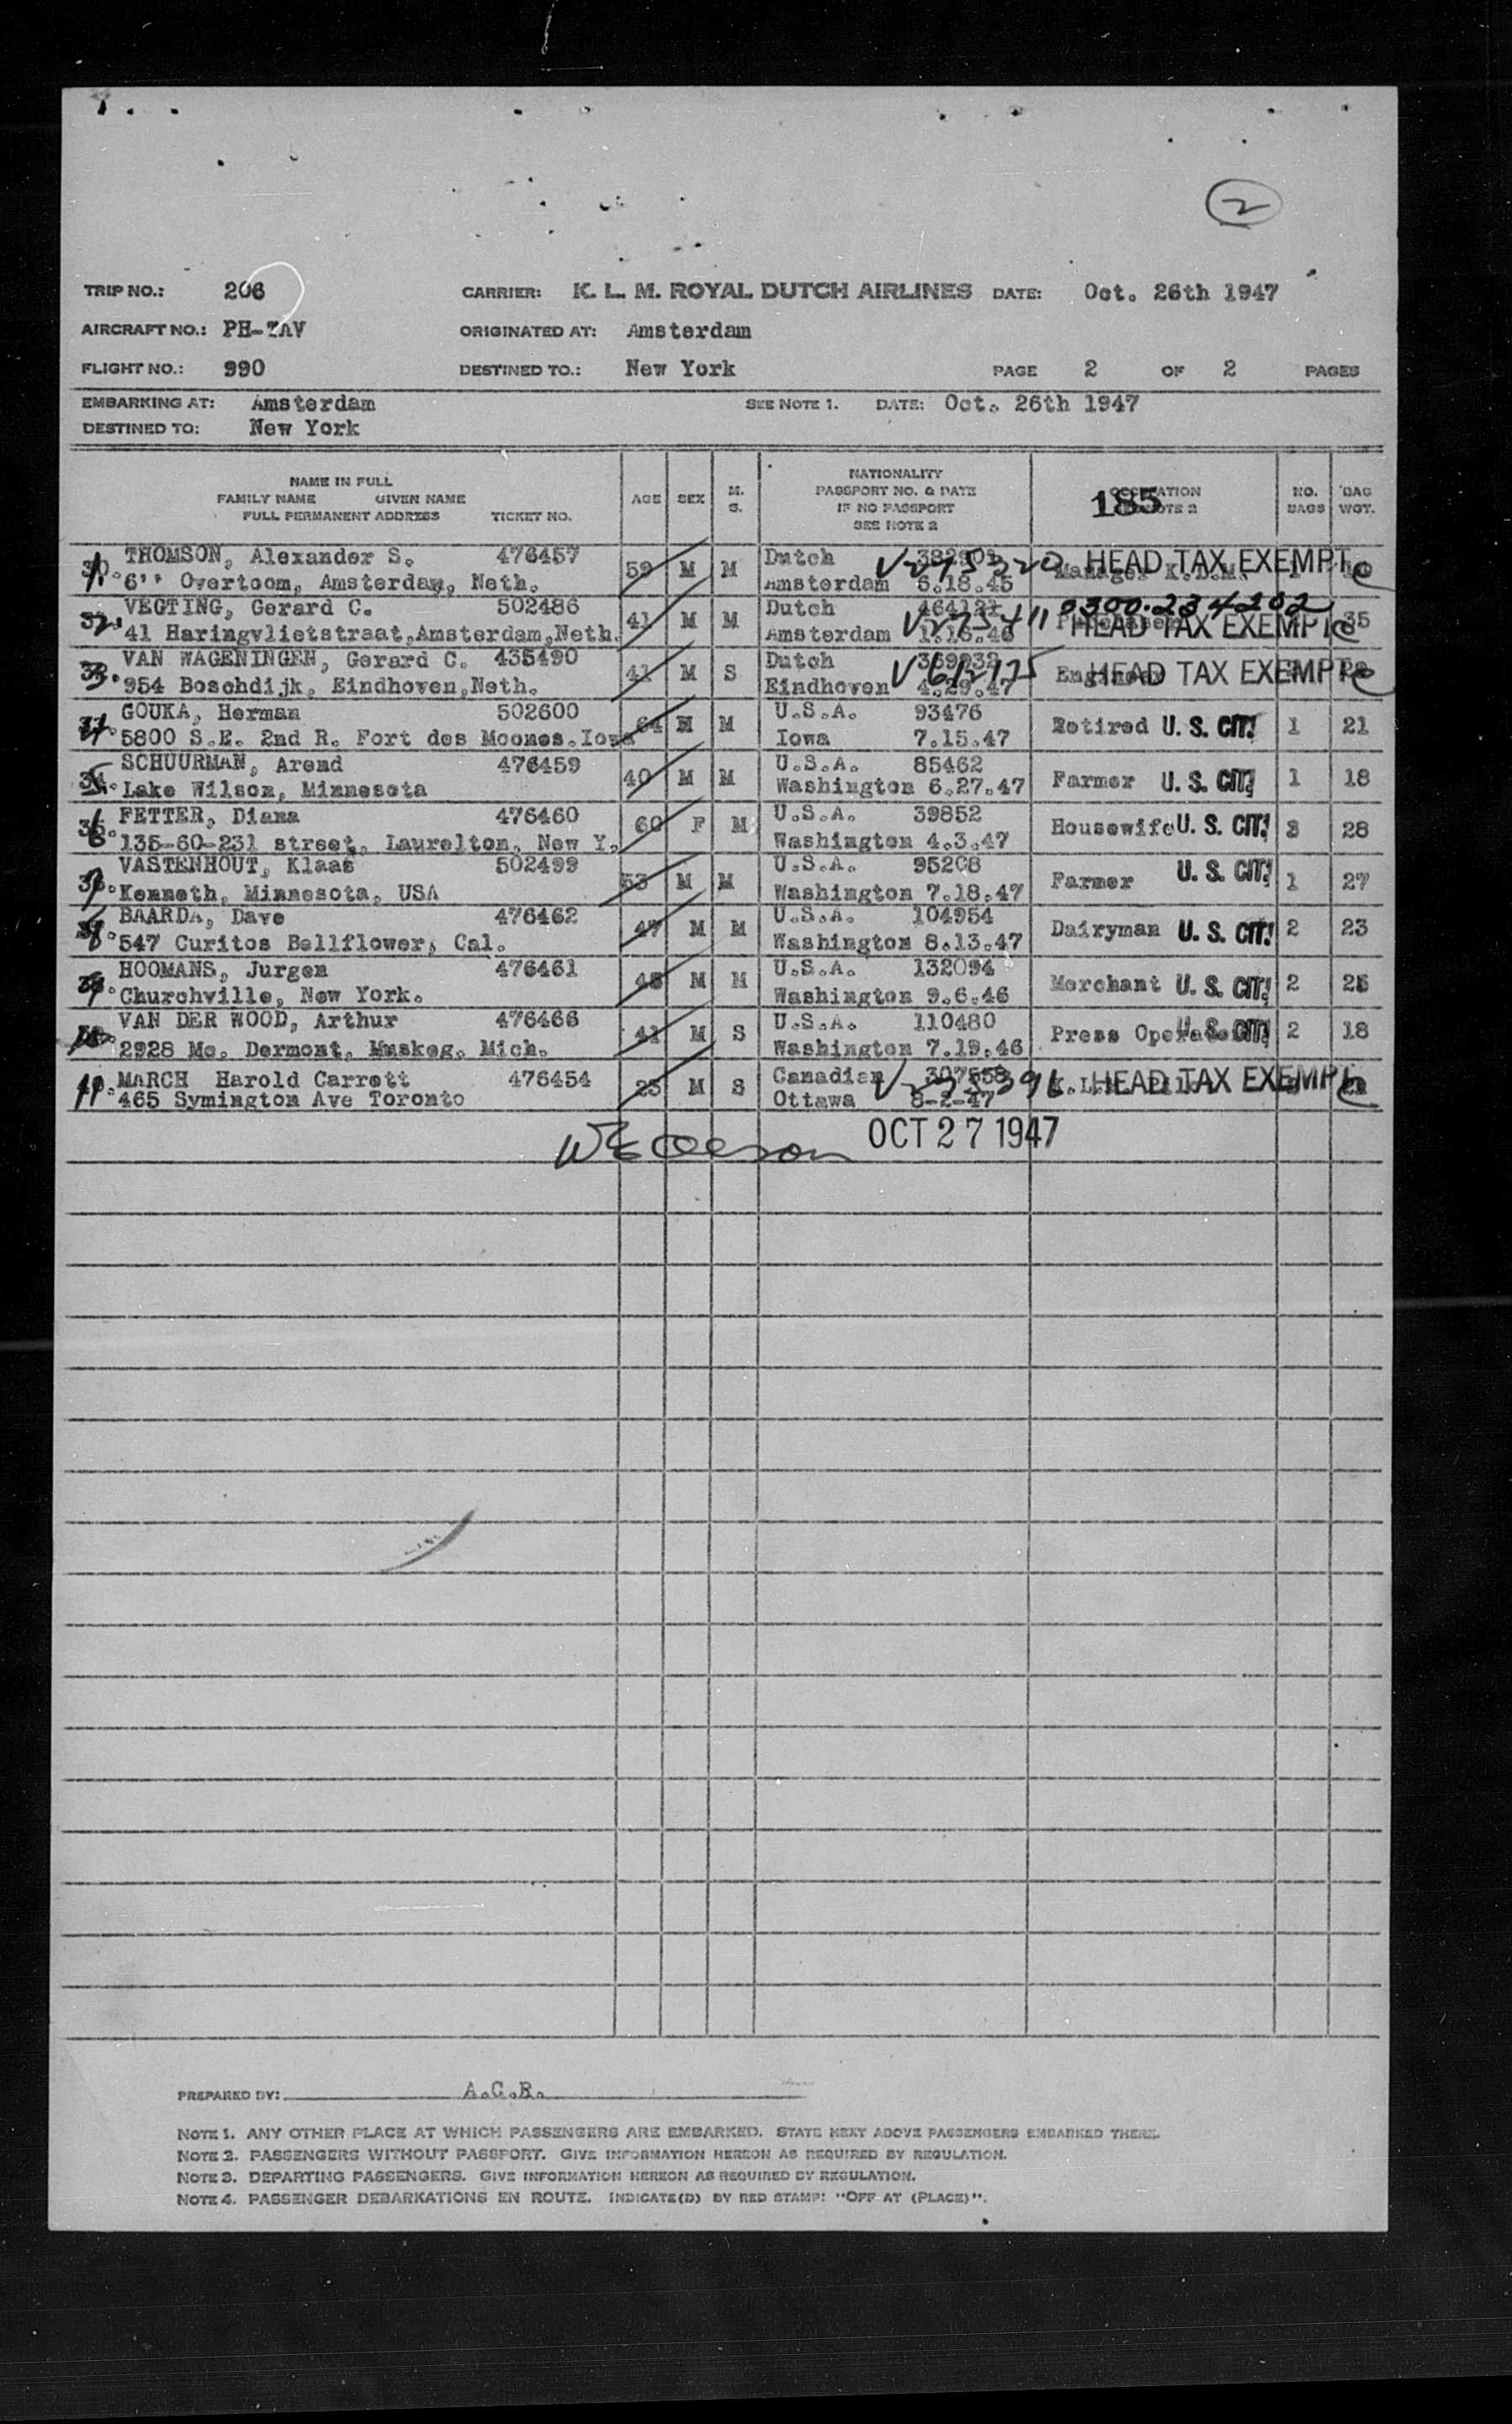 2
TRIP NO.: 206 CARRIER: K. L. M. ROYAL DUTCH AIRLINES DATE: Oct. 26th 1947
AIRCRAFT NO.: PH-TAV ORIGINATED AT: Amsterdam
FLIGHT NO.: 990 DESTINED TO.: New York PAGE 2 OF 2 PAGES
EMBARKING AT: Amsterdam SEE NOTE 1. DATE: Oct. 26th 1947
DESTINED TO: New York
NAME IN FULL
FAMILY NAME GIVEN NAME
FULL PERMANENT ADDRESS TICKET NO.
AGE SEX M. S.
NATIONALITY
PASSPORT NO. & DATE
IF NO PASSPORT
SEE NOTE 2
OCCUPATION
185 NOTE 2
NO. BAGS
BAG WGT.
THOMSON, Alexander S. 476457 59 M M Dutch HEAD TAX EXEMPT
6'' Overtoom, Amsterdam, Neth. Amsterdam 6.18.45 Manager K.L.M.
VEGTING, Gerard C. 502486 41 M M Dutch 0300.234202
41 Haringvlietstraat, Amsterdam, Neth. Amsterdam HEAD TAX EXEMPT 35
VAN WAGENINGEN, Gerard C. 435490 41 M S Dutch
954 Boschdijk, Eindhoven, Neth. Eindhoven 4.29.47 Engineer HEAD TAX EXEMPT
GOUKA, Herman 502600 64 M M U.S.A. 93476
5800 S.E. 2nd R. Fort des Moones. Iowa Iowa 7.15.47 Retired U. S. CIT! 1 21
SCHUURMAN, Arend 476459 40 M M U.S.A. 85462
Lake Wilson, Minnesota Washington 6.27.47 Farmer U. S. CIT! 1 18
FETTER, Diana 476460 60 F M U.S.A. 39852
135-60-231 street, Laurelton, New Y. Washington 4.3.47 Housewife U. S. CIT! 3 28
VASTENHOUT, Klaas 502499 53 M M U.S.A. 95208
Kenneth, Minnesota, USA Washington 7.18.47 Farmer U. S. CIT! 1 27
BAARDA, Dave 476462 47 M M U.S.A. 104954
547 Curitos Bellflower, Cal. Washington 8.13.47 Dairyman U. S. CIT! 2 23
HOOMANS, Jurgen 476461 48 M M U.S.A. 132094
Churchville, New York. Washington 9.6.46 Merchant U. S. CIT! 2 25
VAN DER WOOD, Arthur 476466 41 M S U.S.A. 110480
2928 Mc. Dermont, Muskeg. Mich. Washington 7.19.46 Press Operator U. S. CIT! 2 18
MARCH Harold Carrett 476454 25 M S Canadian HEAD TAX EXEMPT
465 Symington Ave Toronto Ottawa 8-2-47
OCT 27 1947
PREPARED BY: A.C.R.
NOTE 1. ANY OTHER PLACE AT WHICH PASSENGERS ARE EMBARKED. STATE NEXT ABOVE PASSENGERS EMBARKED THERE.
NOTE 2. PASSENGERS WITHOUT PASSPORT. GIVE INFORMATION HEREON AS REQUIRED BY REGULATION.
NOTE 3. DEPARTING PASSENGERS. GIVE INFORMATION HEREON AS REQUIRED BY REGULATION.
NOTE 4. PASSENGER DEBARKATIONS EN ROUTE. INDICATE(D) BY RED STAMP: "OFF AT (PLACE)".